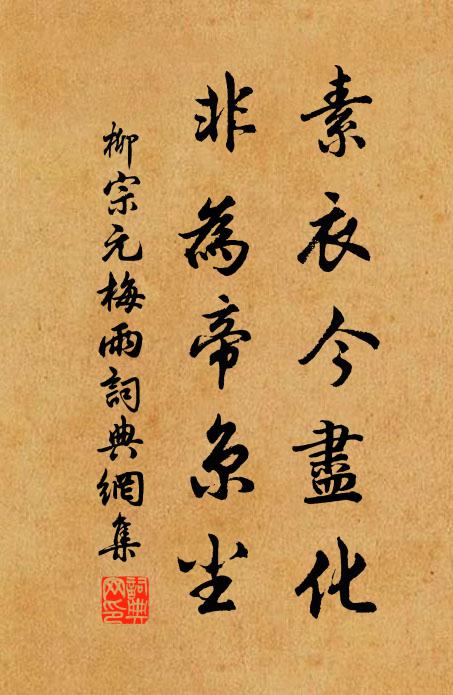 素衣今盡化
非為帝京尘
柳宗元梅雨詞典網集
詞典网印